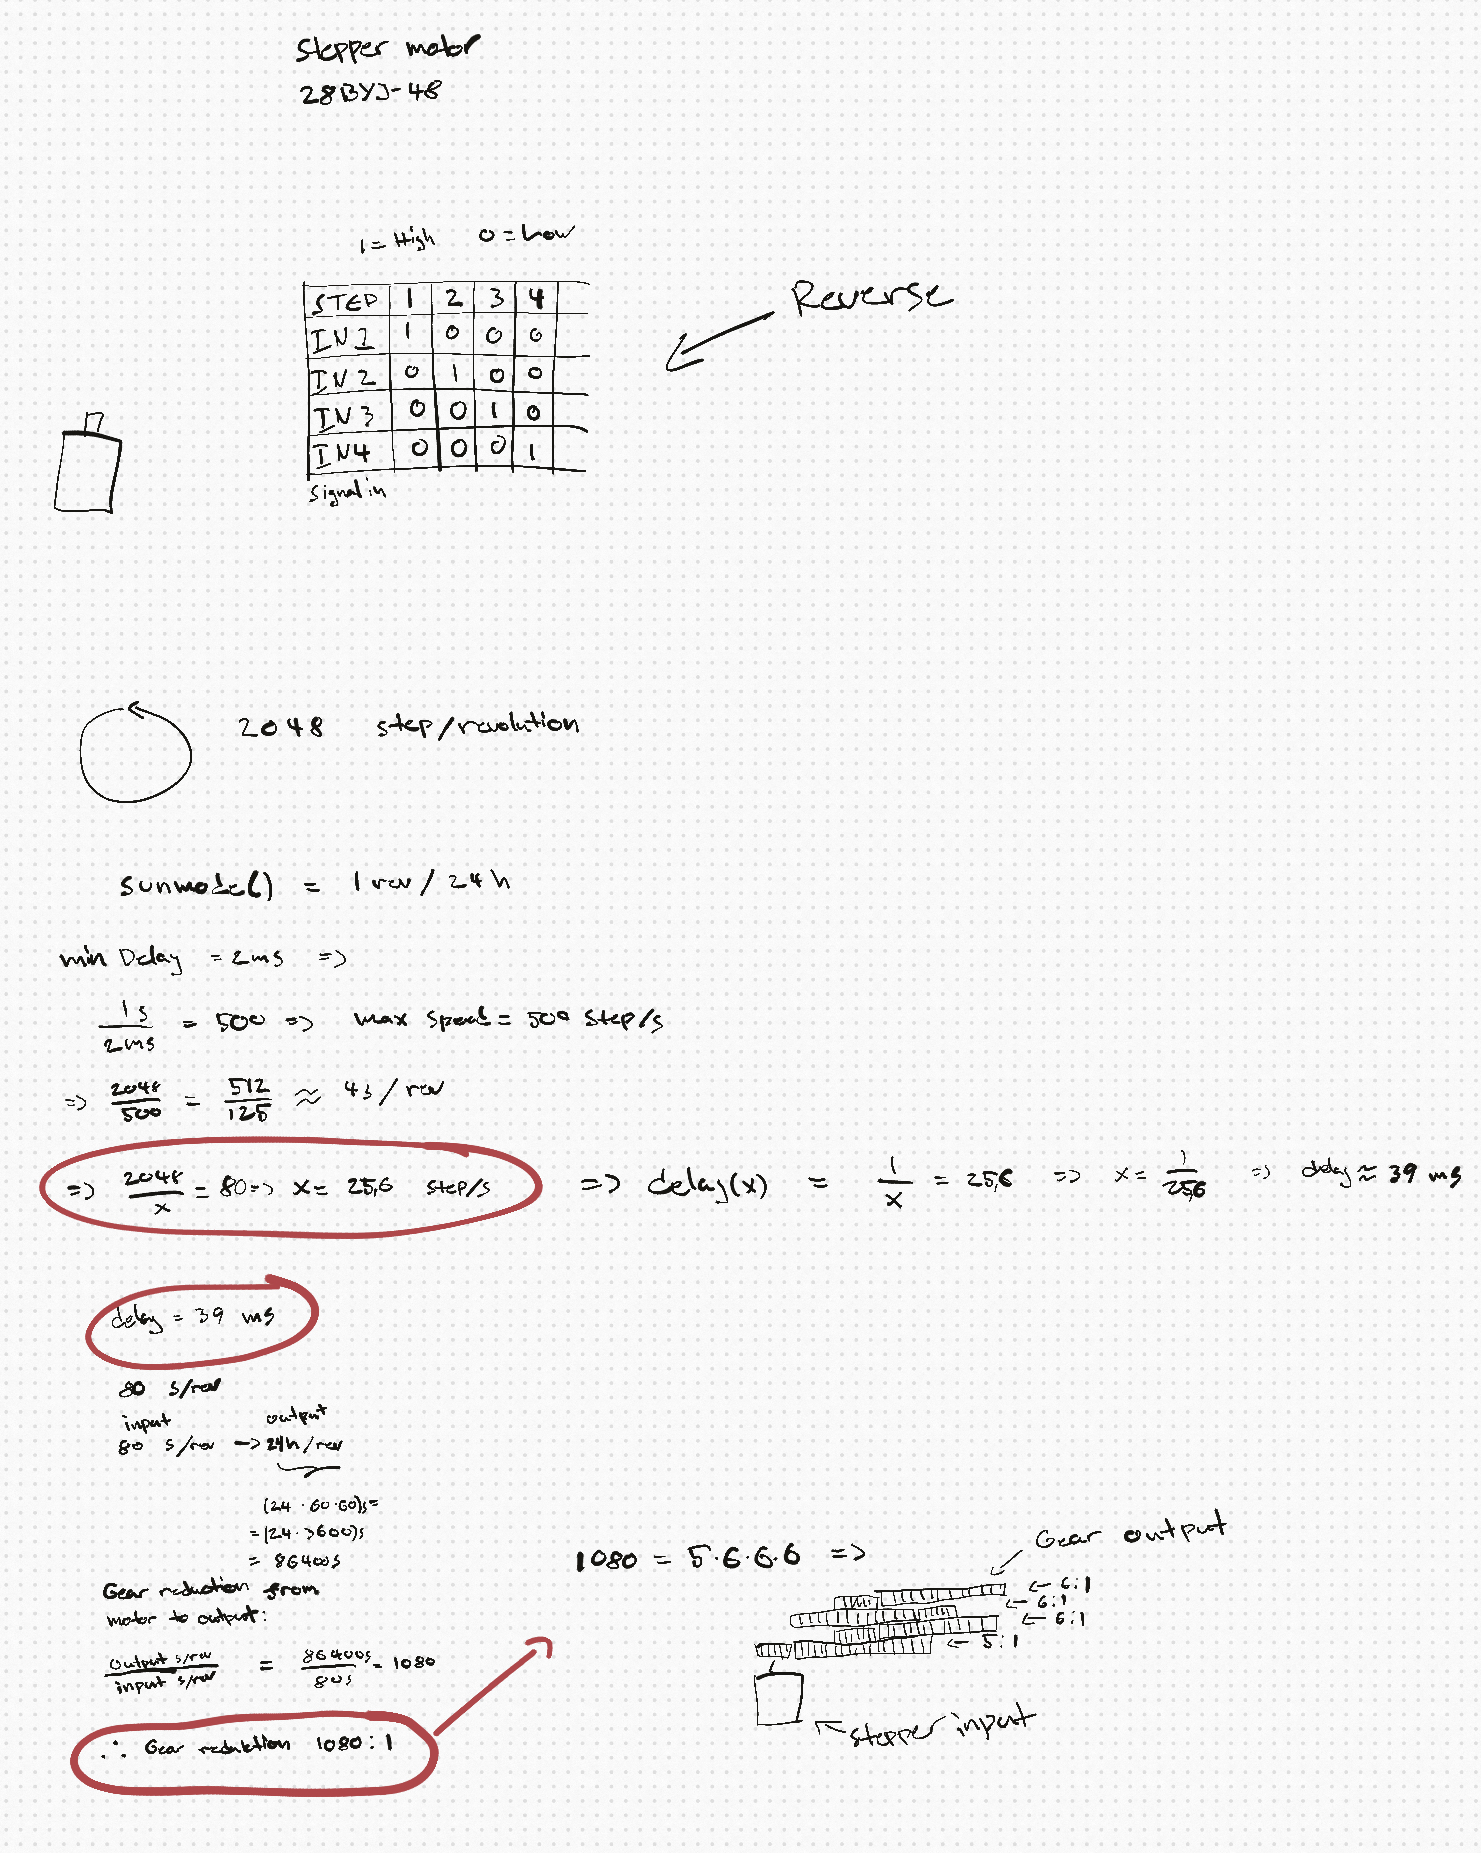 Stepper motor
28BYJ-48
1 = High 0 = Low
STEP 1 2 3 4
IN1 1 0 0 0
IN2 0 1 0 0
IN3 0 0 1 0
IN4 0 0 0 1
Signal in
Reverse
2048 step/revolution
sunmode() = 1 rev / 24 h
min Delay = 2ms =>
1s / 2ms = 500 => max speed = 500 step/s
=> 2048/500 = 512/125 ≈ 4s / rev
=> 2048/x = 80 => x = 25,6 step/s => delay(x) = 1/x = 25,6 => x = 1/25,6 => delay ≈ 39 ms
delay = 39 ms
80 s/rev
input output
80 s/rev -> 24h/rev
(24 · 60 · 60)s =
= (24 · 3600)s
= 86400s
Gear reduction from
motor to output:
output s/rev / input s/rev = 86400s / 80s = 1080
∴ Gear reduktion 1080:1
1080 = 5·6·6·6 =>
Gear output
<- 6:1
<- 6:1
<- 6:1
<- 5:1
stepper input